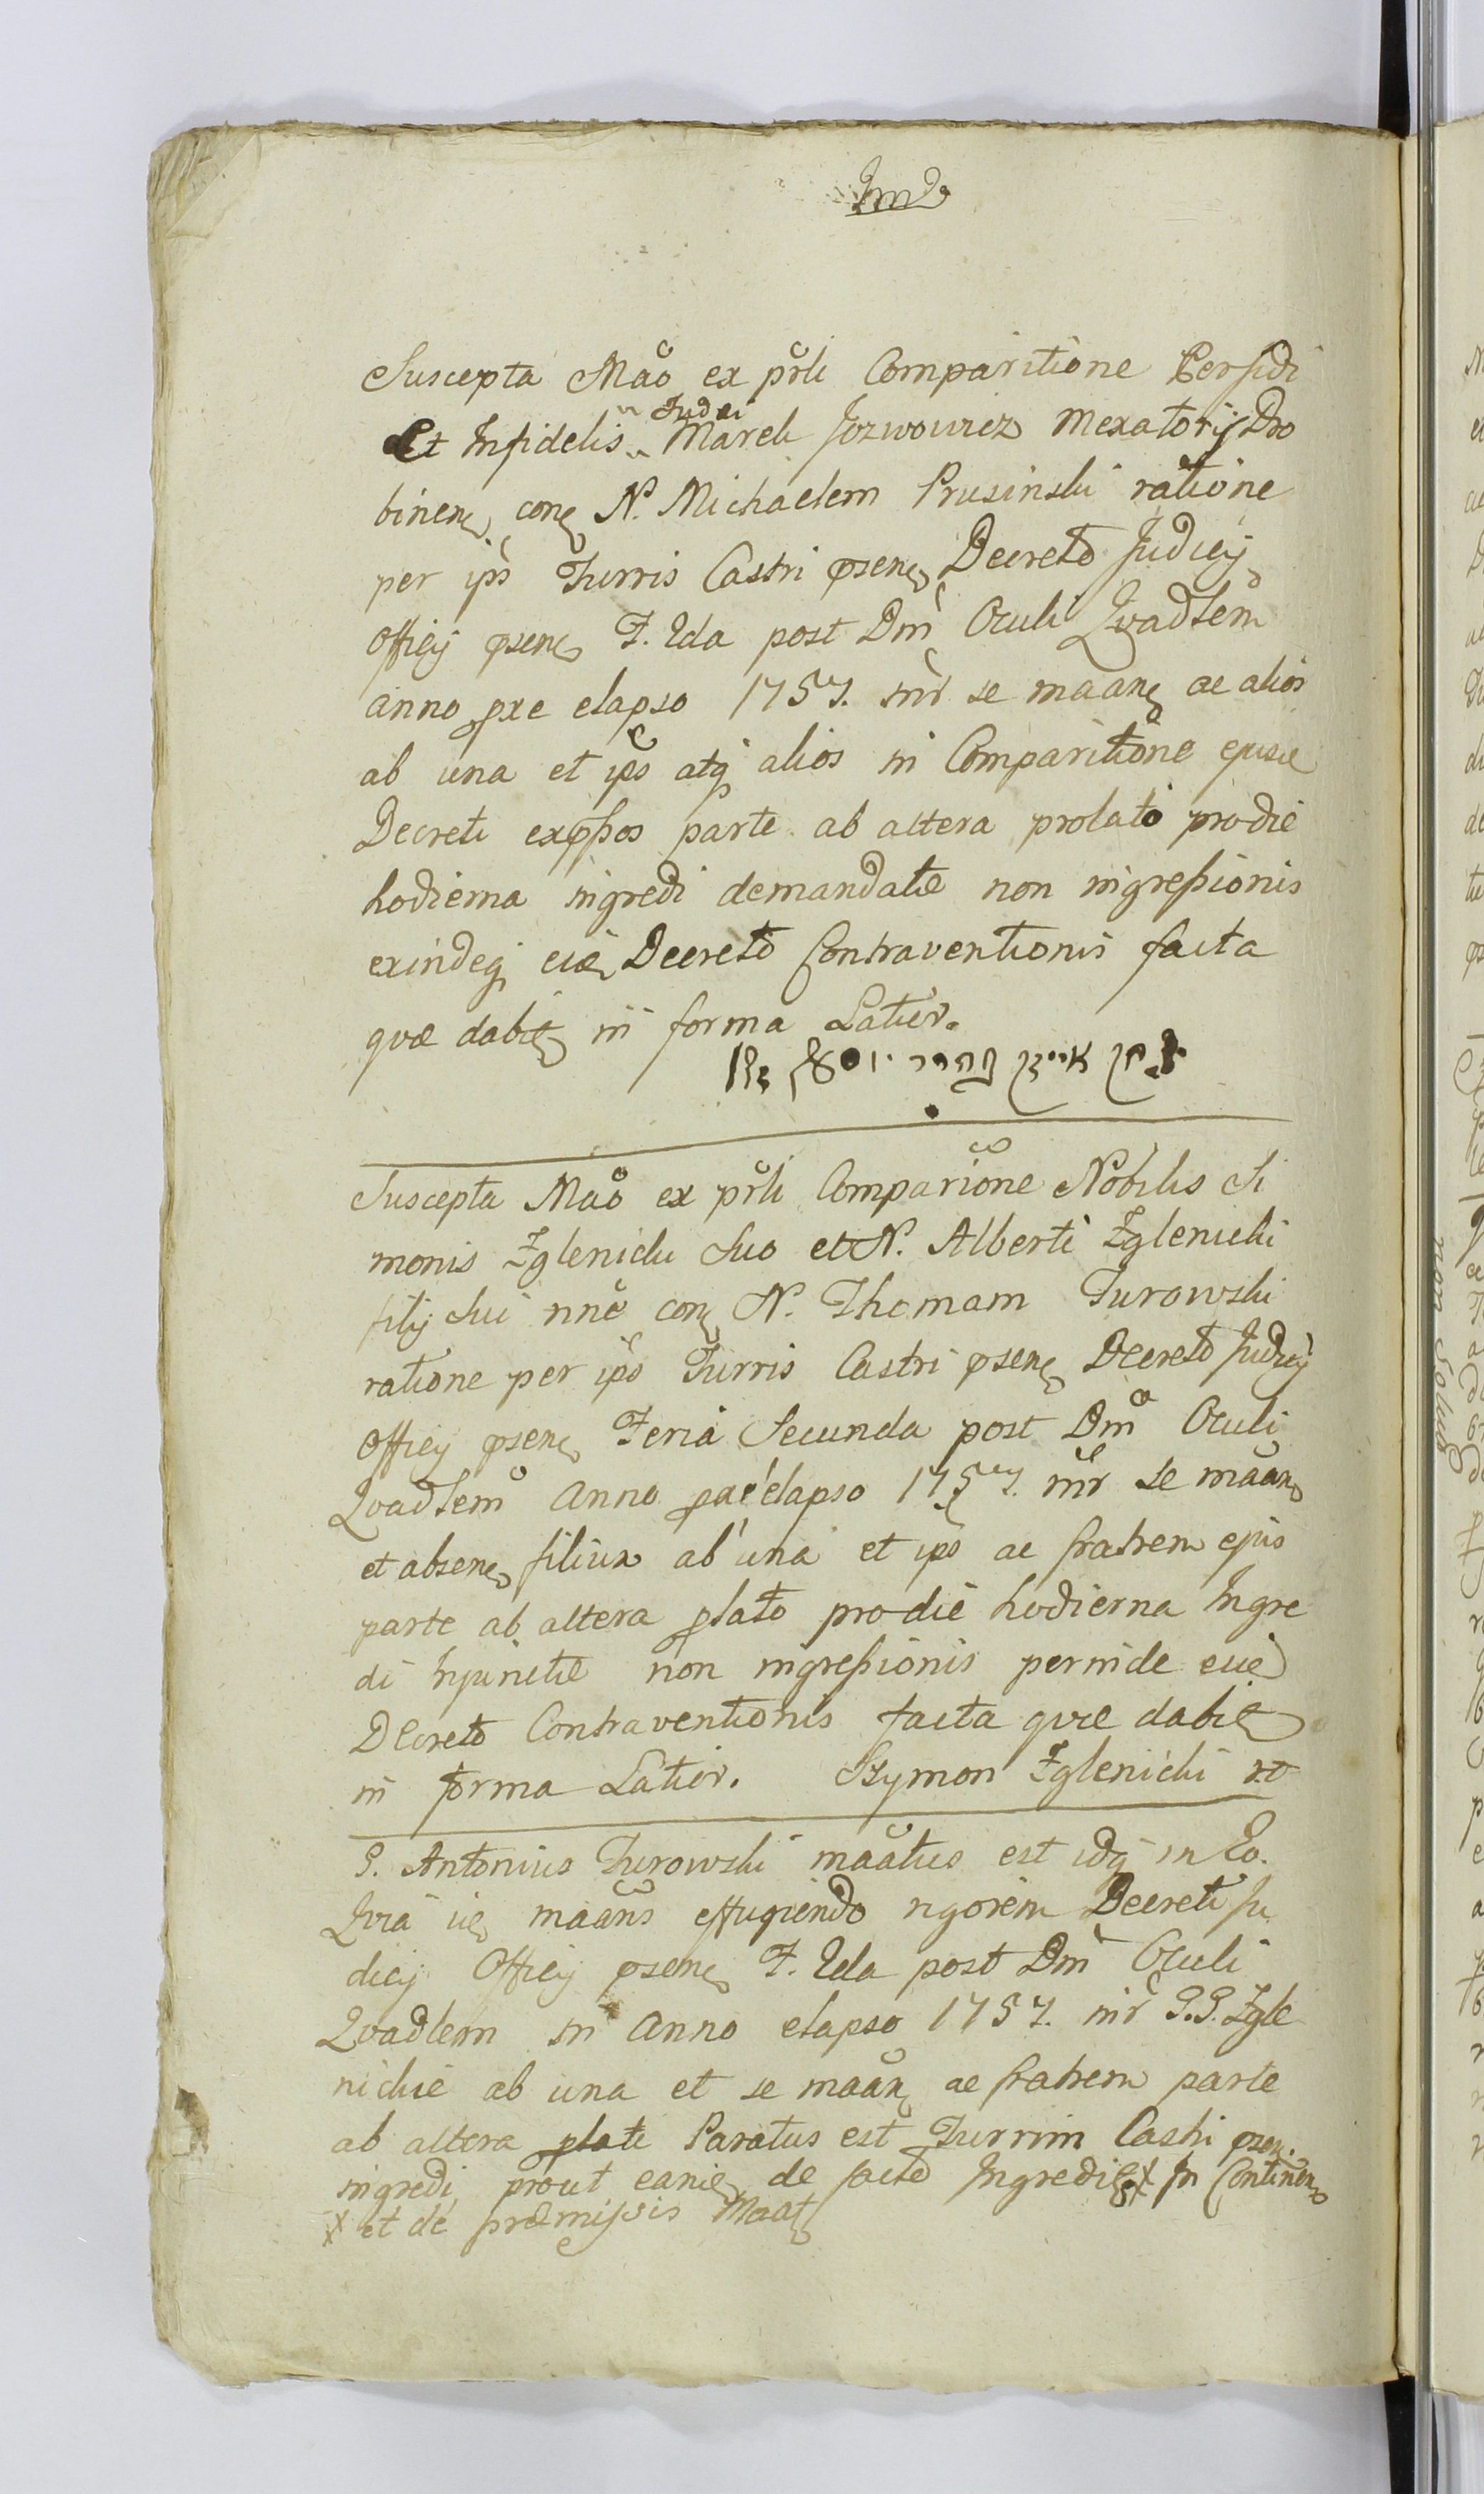 Suscepta Mão ex prli Comparitione Perfidi
Et Infidelis Judæi Marek Jozwowicz Mexatorij Dro
binen con N. Michaelem Prusinski ratione
per ips Turris Castri psen Decreto Judicij
Officij psen F. 2da post Dm Oculi Qvadlem
anno pxe elapso 1757. intr se maan ac alios
ab una et ips atq alios in Comparitione ejusd
Decreti exppsos parte ab altera prolato pro die
hodierna ingredi demandatæ non ingressionis
exindeq eid Decreto Contraventionis facta
qvæ dabit in forma Latior.
Suscepta Mão ex prli Comparione Nobilis Si
monis Zglenicki Suo et N. Alberti Zglenicki
filij Sui nne con N. Thomam Turowski
ratione per ips Turris Castri psen Decreto Judicij
Officij psen Feria Secunda post Dm Oculi
Qvadlem Anno pxe elapso 1757. intr se maan
et absen filium ab una et ips ac fratrem ejus
parte ab altera plato pro die hodierna Ingre
di Injunctæ non ingressionis perinde eid
Decreto Contraventionis facta qvæ dabit
in forma Latior. Szymon Zglenicki
G. Antonius Turowski maatus est idq in Eo.
Qvia is maans effugiendo rigorem Decreti Ju
dicij Officij psen F. 2da post Dm Oculi
Qvadlem in Anno elapso 1757. intr G.G. Zgle
nickie ab una et se maan ac fratrem parte
ab altera plati Paratus est Turrim Castri psen.
ingredi prout eand de facto Ingredit X In Continen
X et de præmissis Maat